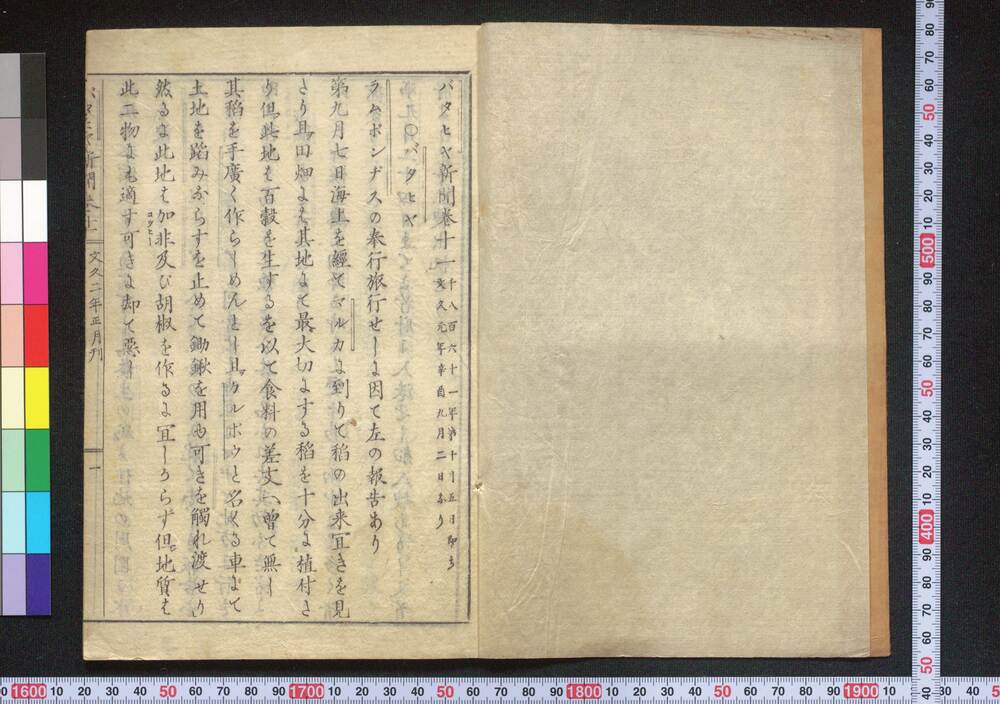 バタヒヤ新聞巻十一 千八百六十一年第十月五日即ち
文久元年辛酉九月二日なり
〇バタヒヤ
ラムポンヂスの奉行旅行せしよ因て左の報告あり
第九月七日海上を經てマルカよ到りて稻の出来冝きを見
たり且田畑よも其地よて最大切よする稻を十分よ植付た
り但此地も百穀を生するを以て食料の差支へ曽て無し
其稻を手廣く作らしめんとし且クルボウと名くる車よて
土地を踏みならすを止めて鋤鍬を用ゆ可きを觸れ渡せり
然るよ此地も加非及び胡椒を作るよ冝しからず但地質も
コッヒー
此二物よも適す可きよ却て悪し
バタヒヤ新聞巻十一
文久二年正月刊
一